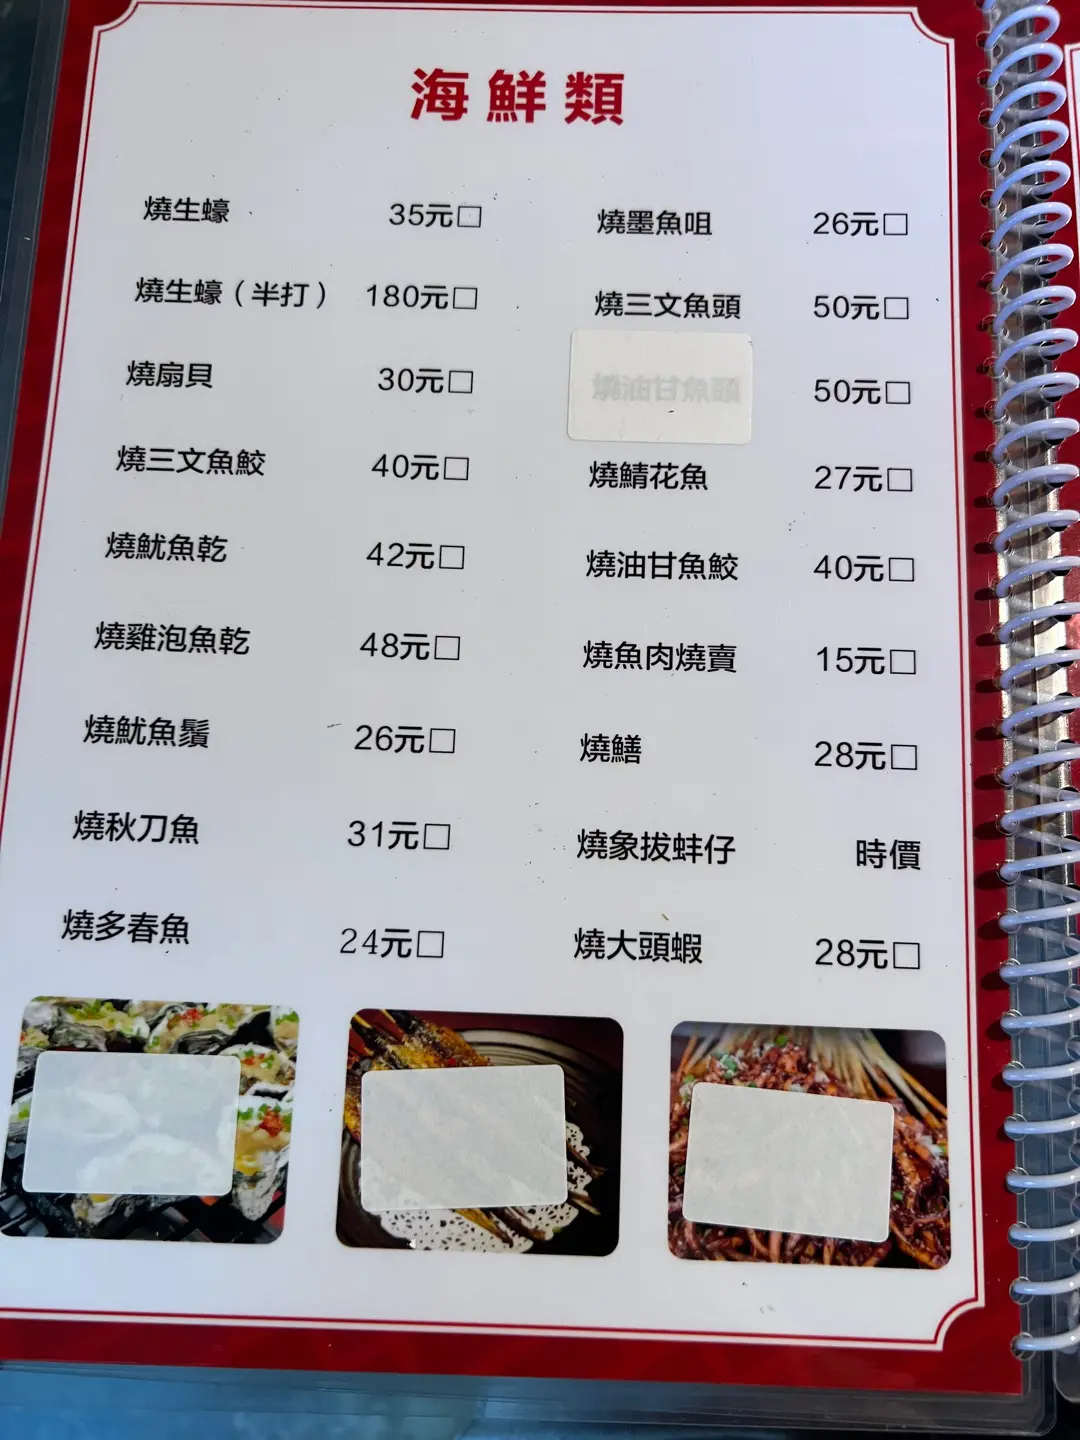 海鮮類
燒生蠔 35元□
燒生蠔（半打） 180元□
燒扇貝 30元□
燒三文魚鮫 40元□
燒魷魚乾 42元□
燒雞泡魚乾 48元□
燒魷魚鬚 26元□
燒秋刀魚 31元□
燒多春魚 24元□
燒墨魚咀 26元□
燒三文魚頭 50元□
燒油甘魚頭 50元□
燒鯖花魚 27元□
燒油甘魚鮫 40元□
燒魚肉燒賣 15元□
燒鱔 28元□
燒象拔蚌仔 時價
燒大頭蝦 28元□